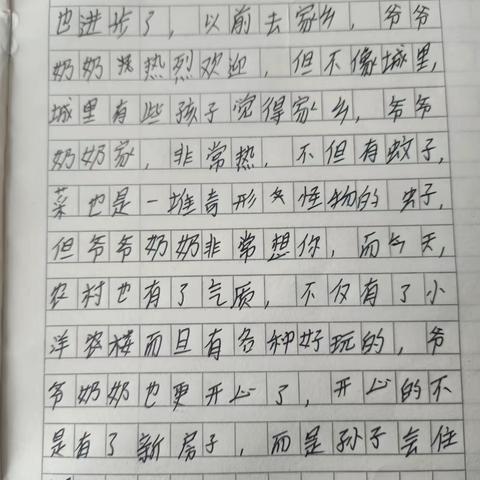 也进步了，以前去家乡，爷爷
奶奶热烈欢迎，但不像城里，
城里有些孩子觉得家乡，爷爷
奶奶家，非常热，不但有蚊子，
菜也是一堆奇形怪物的虫子，
但爷爷奶奶非常想你，而今天，
农村也有了气质，不仅有了小
洋农楼而且有各种好玩的，爷
爷奶奶也更开心了，开心的不
是有了新房子，而是孙子会住